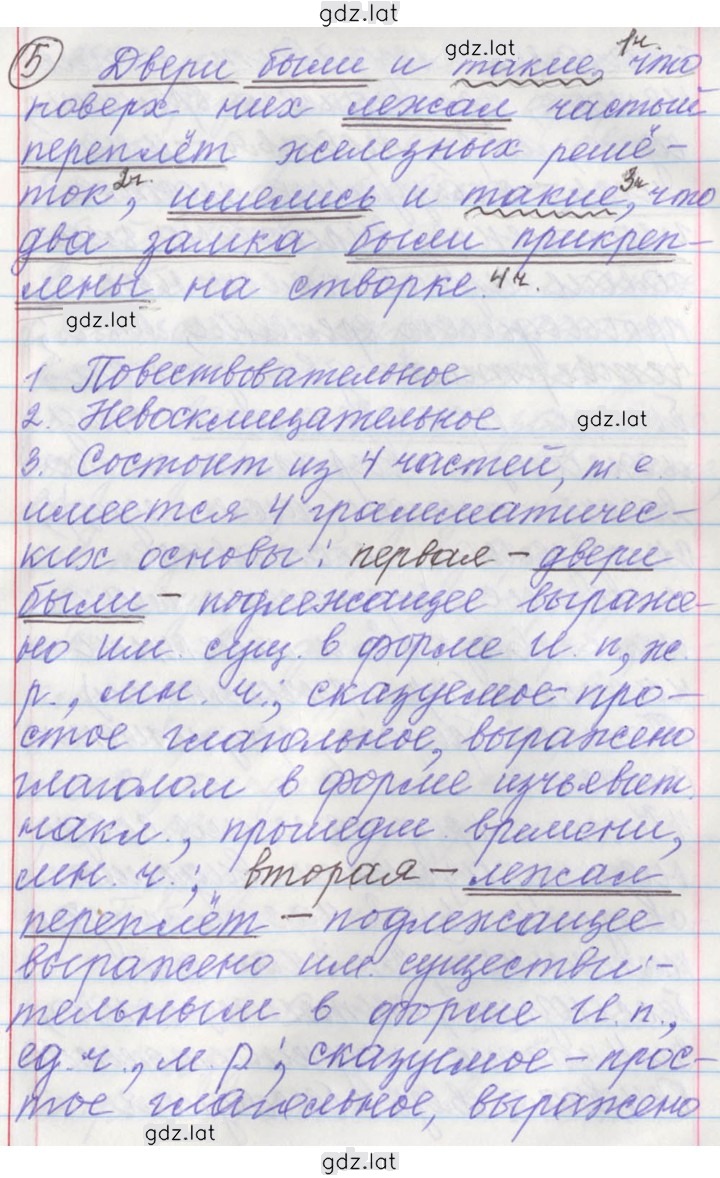 gdz.lat
5 Двери были и такие, 1ч. что
gdz.lat
поверх них лежал частый
переплёт железных решё-
ток 2ч., имелись и такие, 3ч. что
два замка были прикреп-
лены на створке. 4ч.
gdz.lat
1 Повествовательное
2. Невосклицательное
gdz.lat
3. Состоит из 4 частей, т. е.
имеется 4 грамматичес-
ких основы: первая – двери
были – подлежащее выраже-
но им. сущ. в форме И. п., ж.
р., мн. ч.; сказуемое – про-
стое глагольное, выражено
глаголом в форме изъявит.
накл., прошедш. времени,
мн. ч.; вторая – лежал
переплёт – подлежащее
выражено им. существи-
тельным в форме И. п.,
ед. ч., м. р.; сказуемое – прос-
тое глагольное, выражено
gdz.lat
gdz.lat